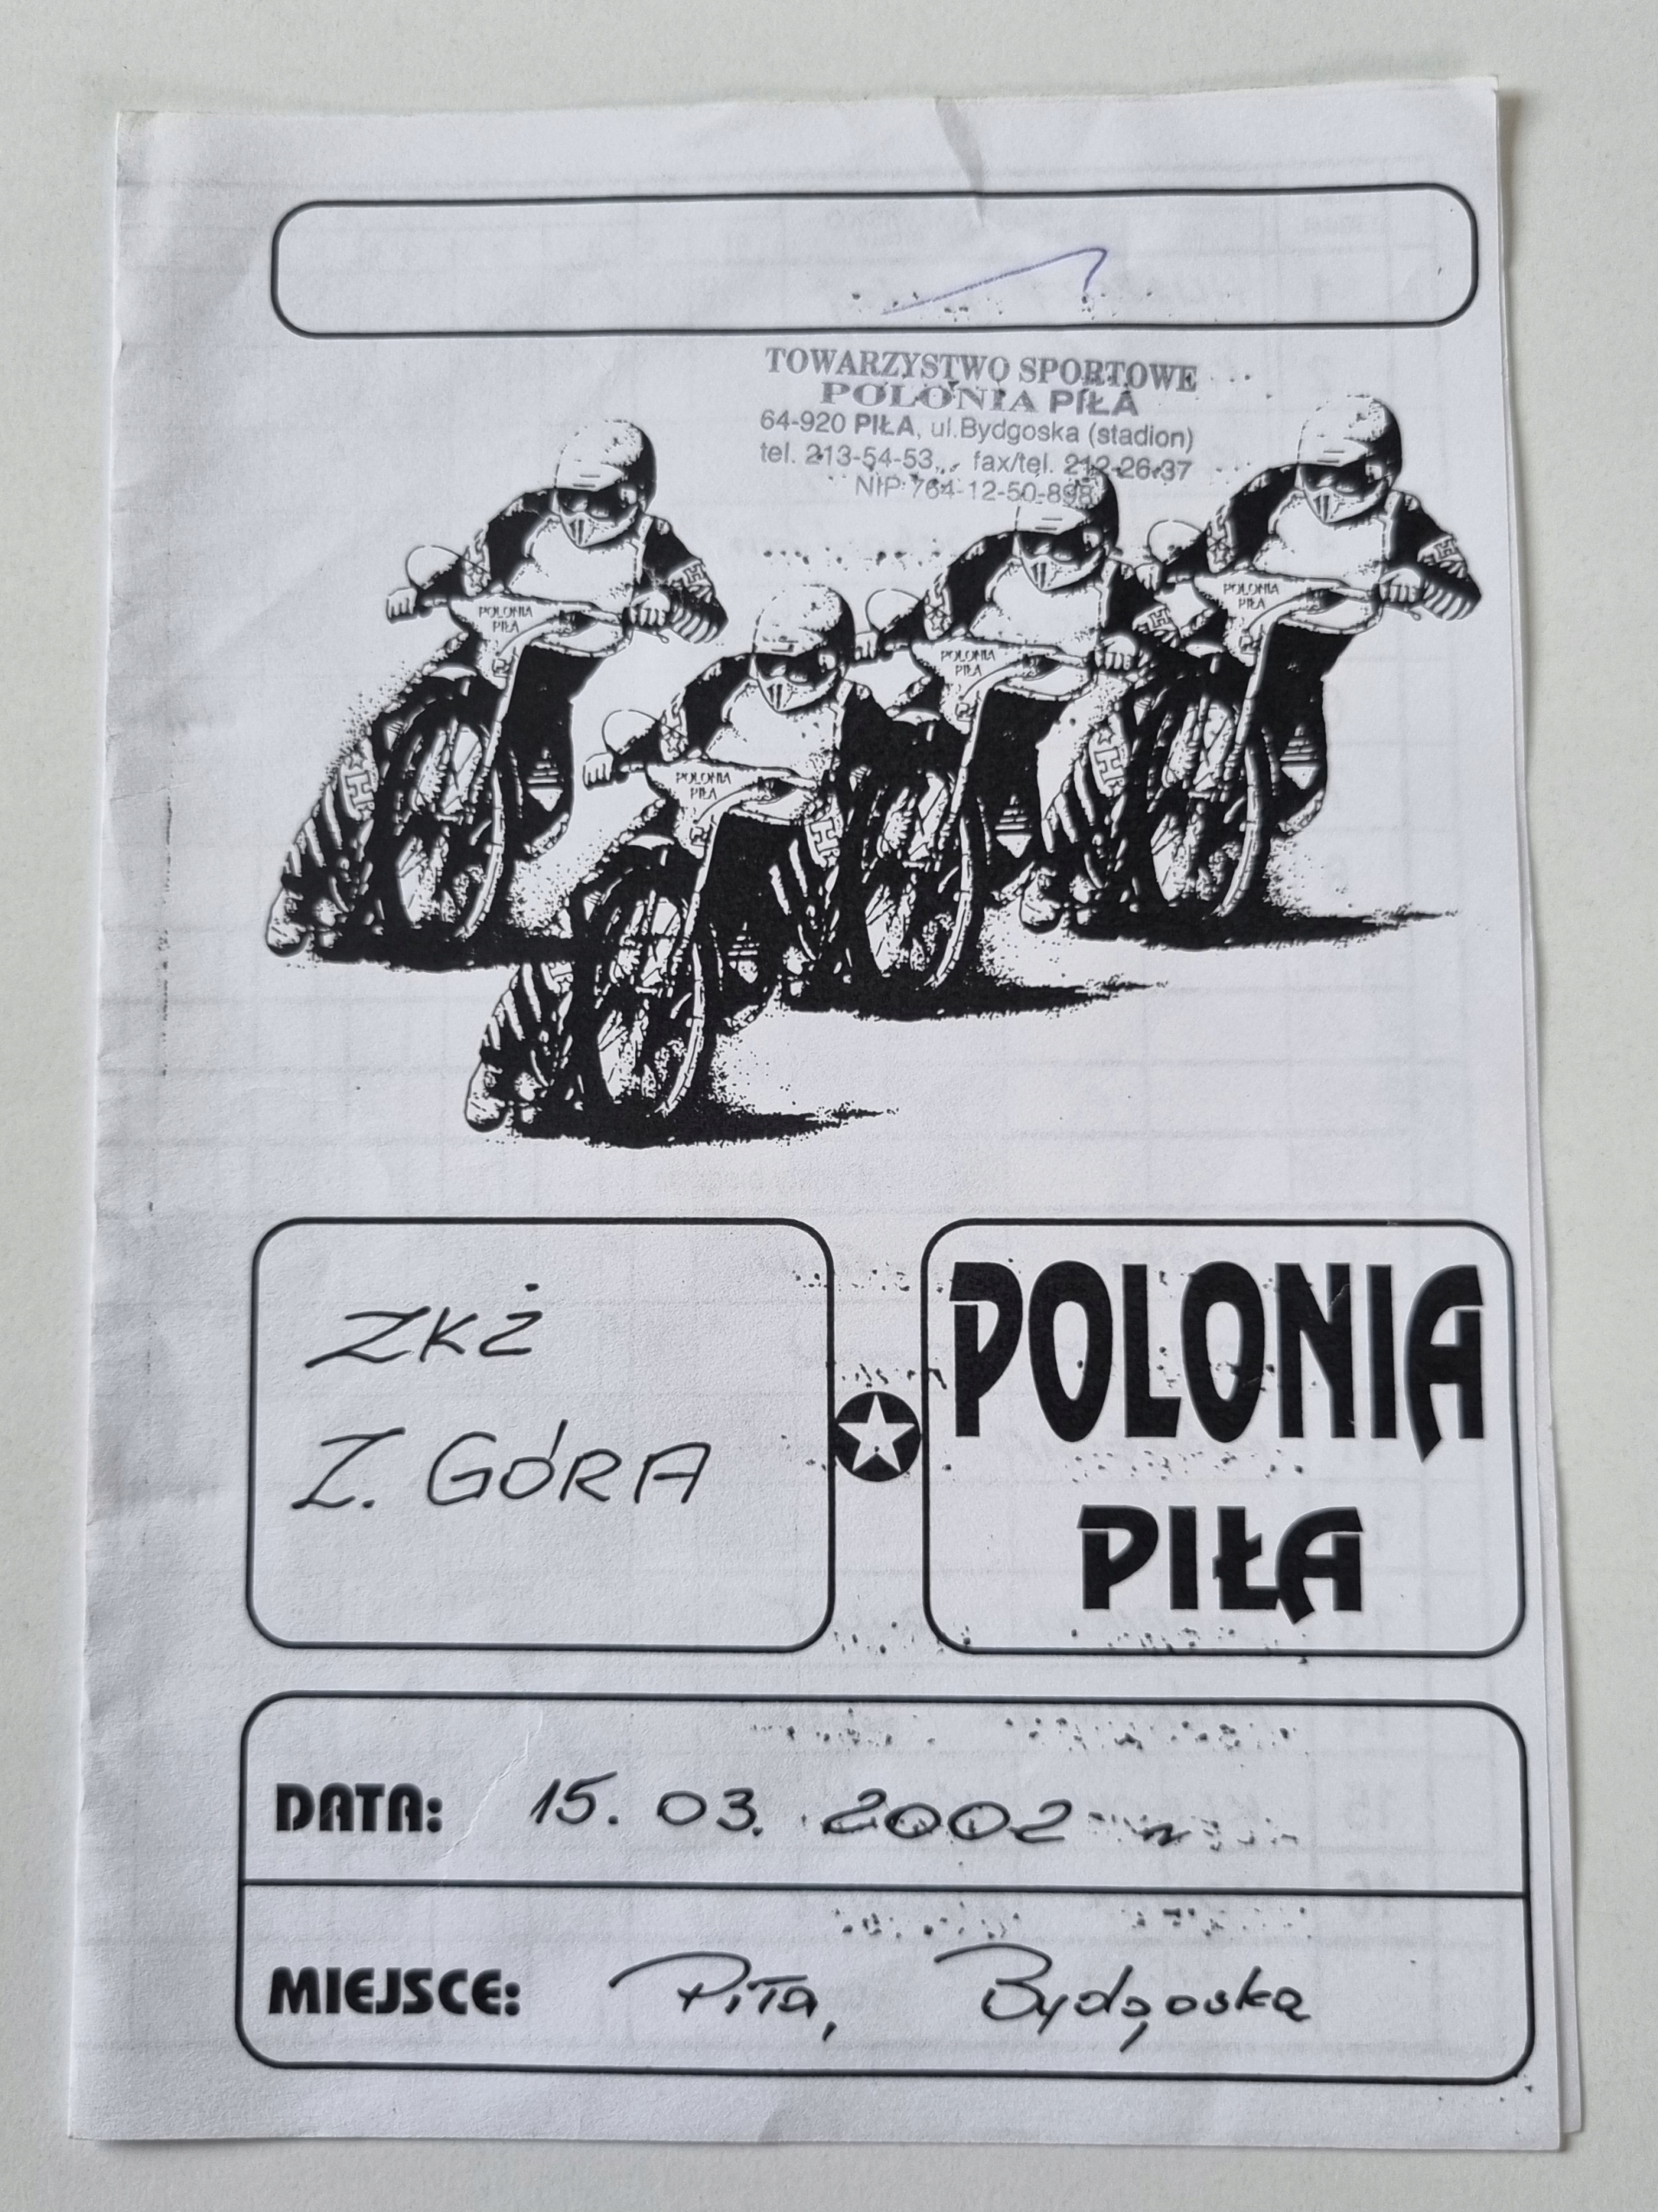 TOWARZYSTWO SPORTOWE
POLONIA PIŁA
64-920 PIŁA, ul.Bydgoska (stadion)
tel. 213-54-53, fax/tel. 212-26-37
NIP 764-12-50-898
POLONIA
PIŁA
POLONIA
PIŁA
POLONIA
PIŁA
POLONIA
PIŁA
ZKŻ
Z. GÓRA
POLONIA
PIŁA
DATA: 15. 03. 2002
MIEJSCE: Piła, Bydgoska